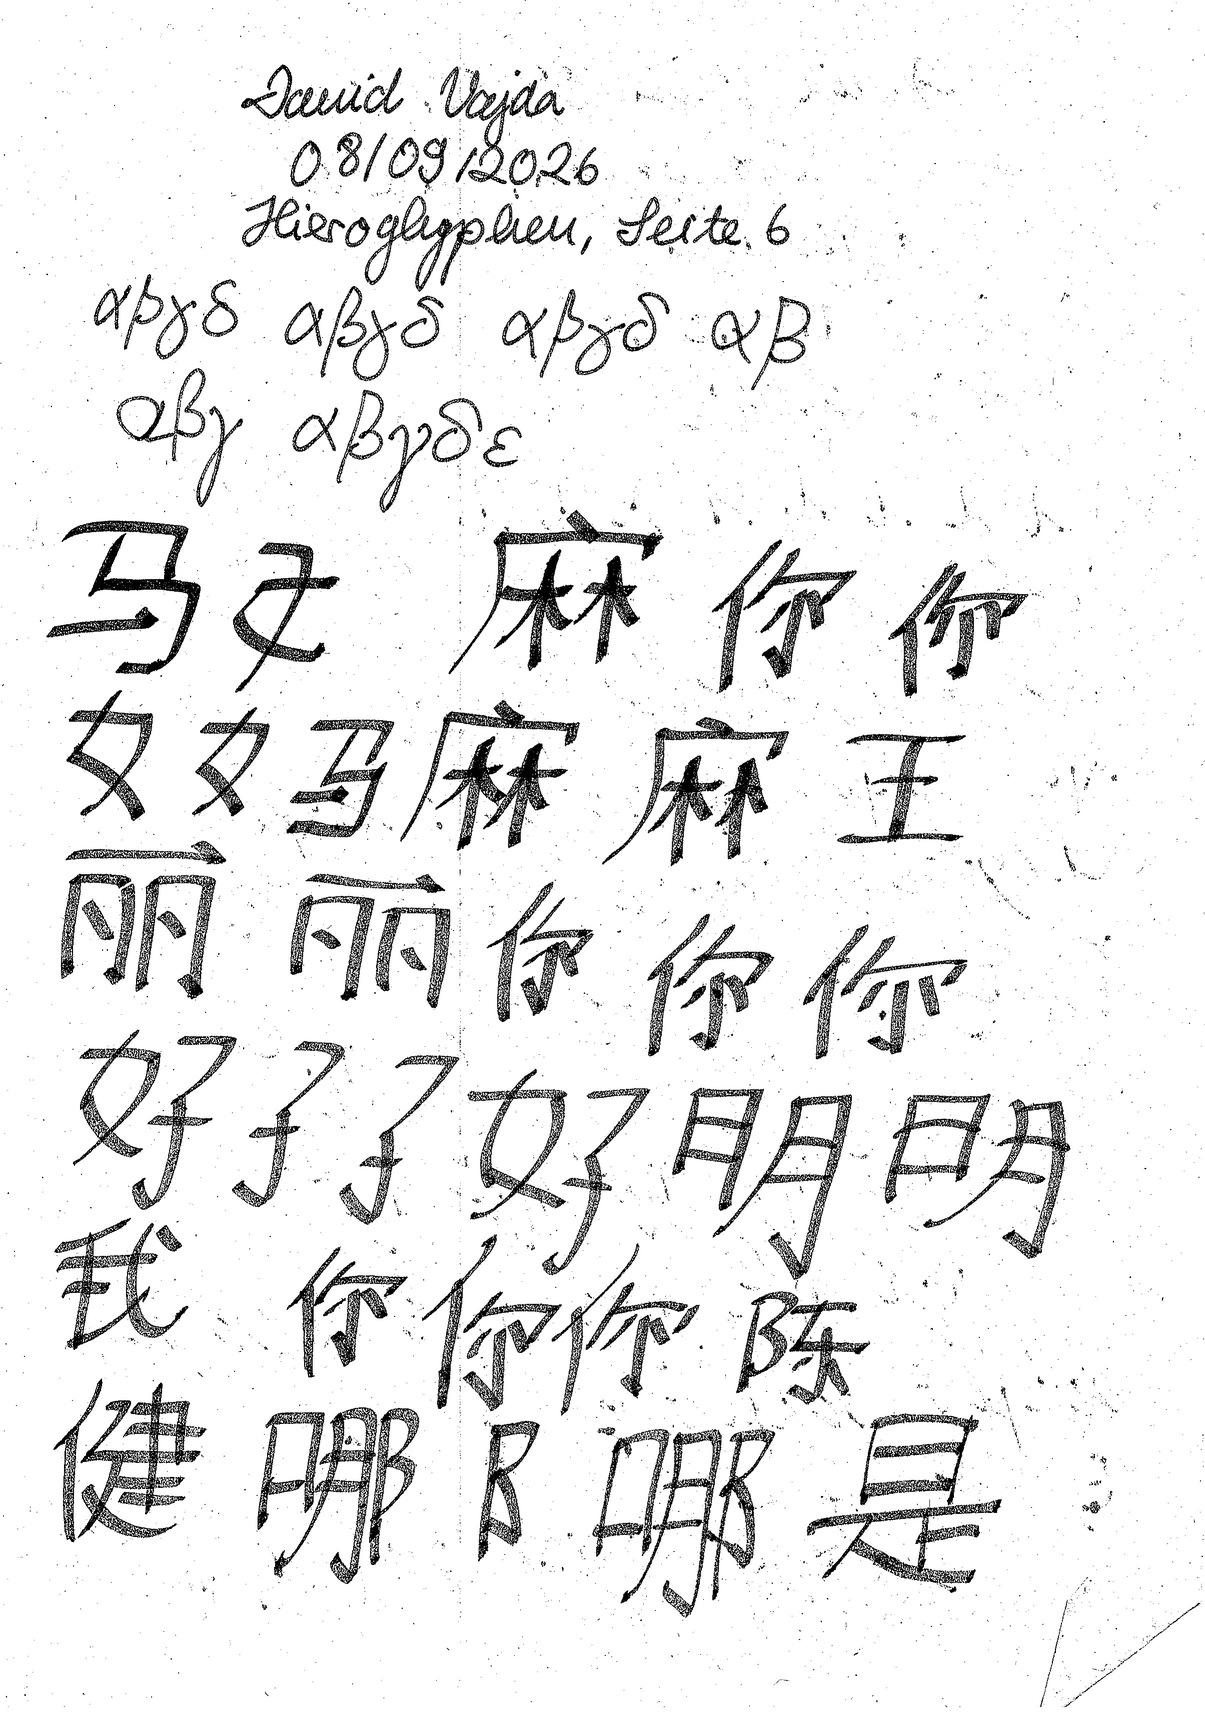 David Vajda
08/09/2026
Hieroglyphen, Seite 6
αβγδ αβγδ αβγδ αβ
αβγ αβγδε
马 麻 你 你
女 女 马 麻 麻 王
丽 丽 你 你 你
好 子 子 好 明 明
我 你 你 你 陈
健 哪 阝 哪 是